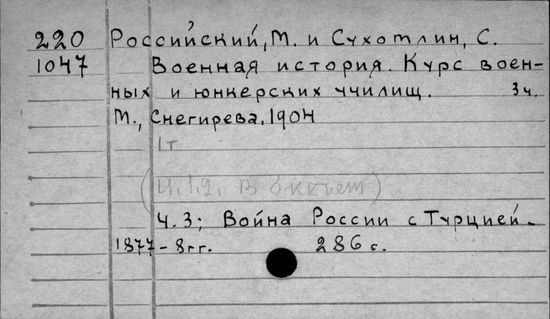 220 Российский, М. и Сухотлин, С.
1047 Военная история. Курс воен-
ных и юнкерских училищ. 3 ч.
М., Снегирева, 1904
1т
(Ч. 1, 2. В )
Ч. 3; Война России с Турцией
1877-8гг. 286 с.